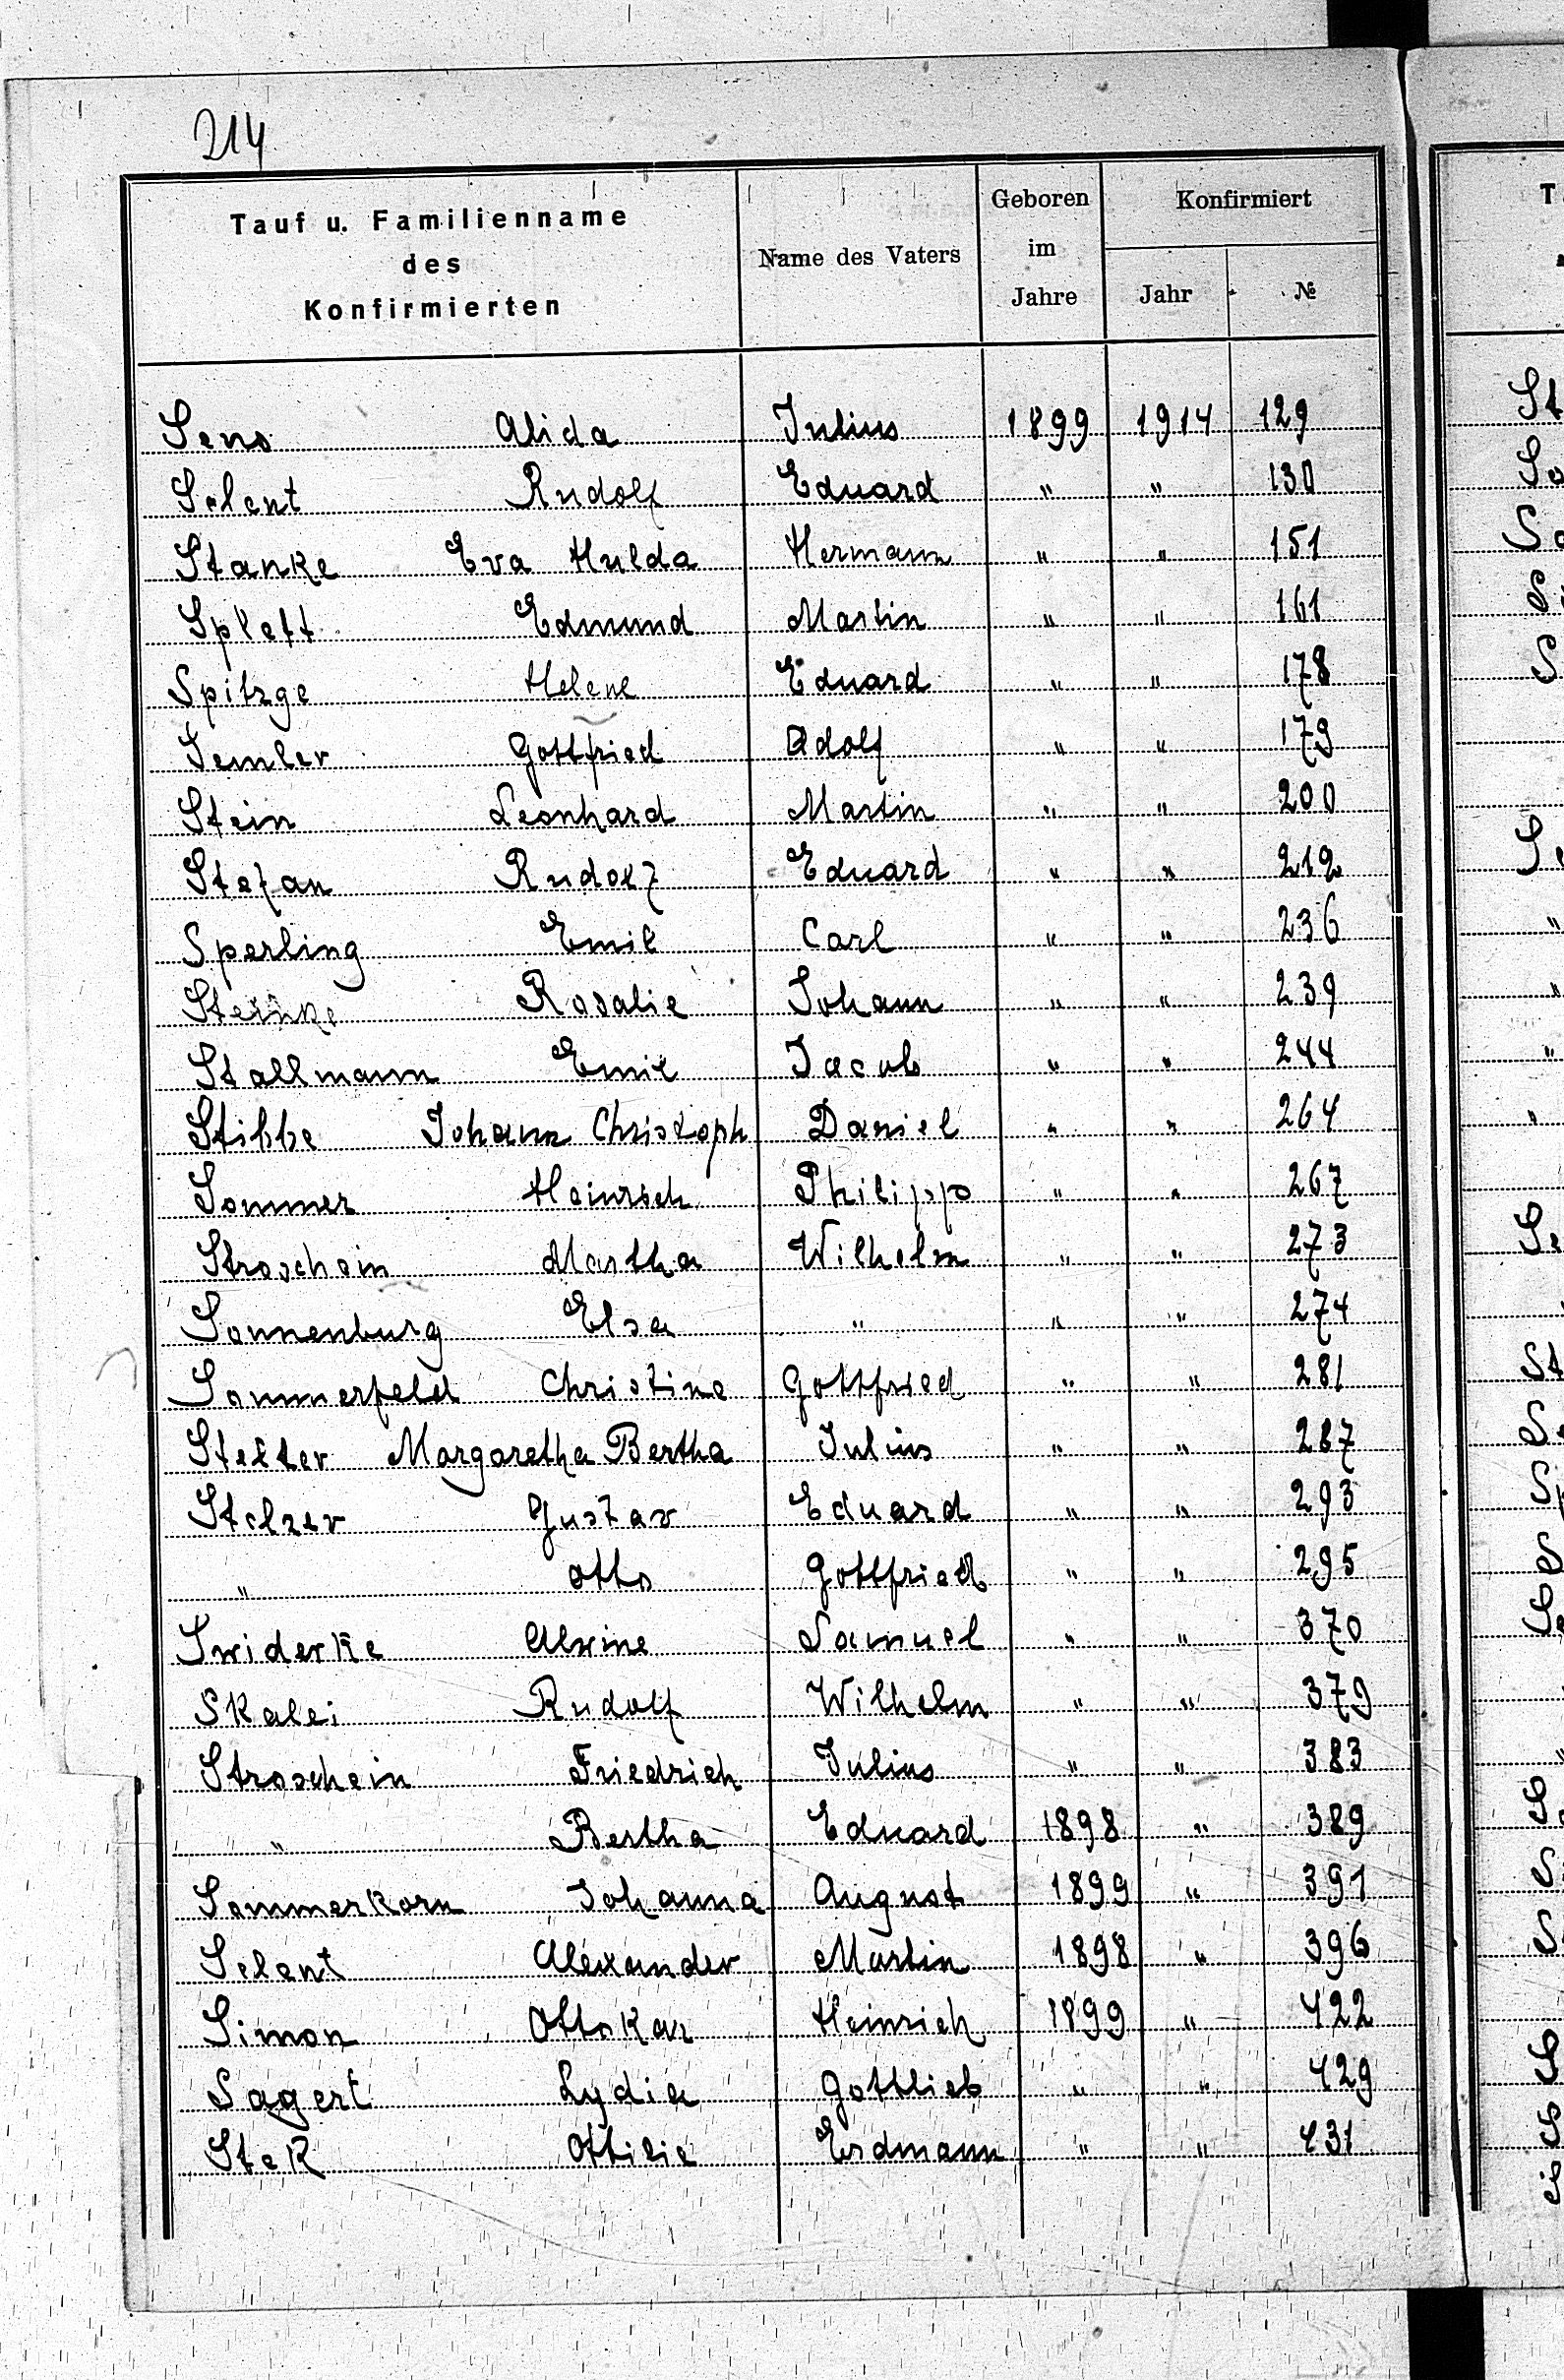 214
Tauf u. Familienname des Konfirmierten | Name des Vaters | Geboren im Jahre | Konfirmiert Jahr | №
Sens Alida Julius 1899 1914 129
Selent Rudolf Eduard " " 130
Stanke Eva Hulda Hermann " " 151
Splett Edmund Martin " " 161
Spitzge Helene Eduard " " 178
Semler Gottfried Adolf " " 179
Stein Leonhard Martin " " 200
Stefan Rudolf Eduard " " 212
Sperling Emil Carl " " 236
Steinke Rosalie Johann " " 239
Stallmann Emil Jacob " " 244
Stibbe Johann Christoph Daniel " " 264
Sommer Heinrich Philipp " " 267
Stroschein Martha Wilhelm " " 273
Sonnenburg Elsa " " " 274
Sommerfeld Christine Gottfried " " 281
Stelter Margaretha Bertha Julius " " 287
Stelzer Gustav Eduard " " 293
" Otto Gottfried " " 295
Swiderke Alwine Samuel " " 370
Skalei Rudolf Wilhelm " " 379
Stroschein Friedrich Julius " " 383
" Bertha Eduard 1898 " 389
Sommerkorn Johanna August 1899 " 391
Selent Alexander Martin 1898 " 396
Simon Ottokar Heinrich 1899 " 422
Sagert Lydia Gottlieb " " 429
Stek Ottilie Erdmann " " 431